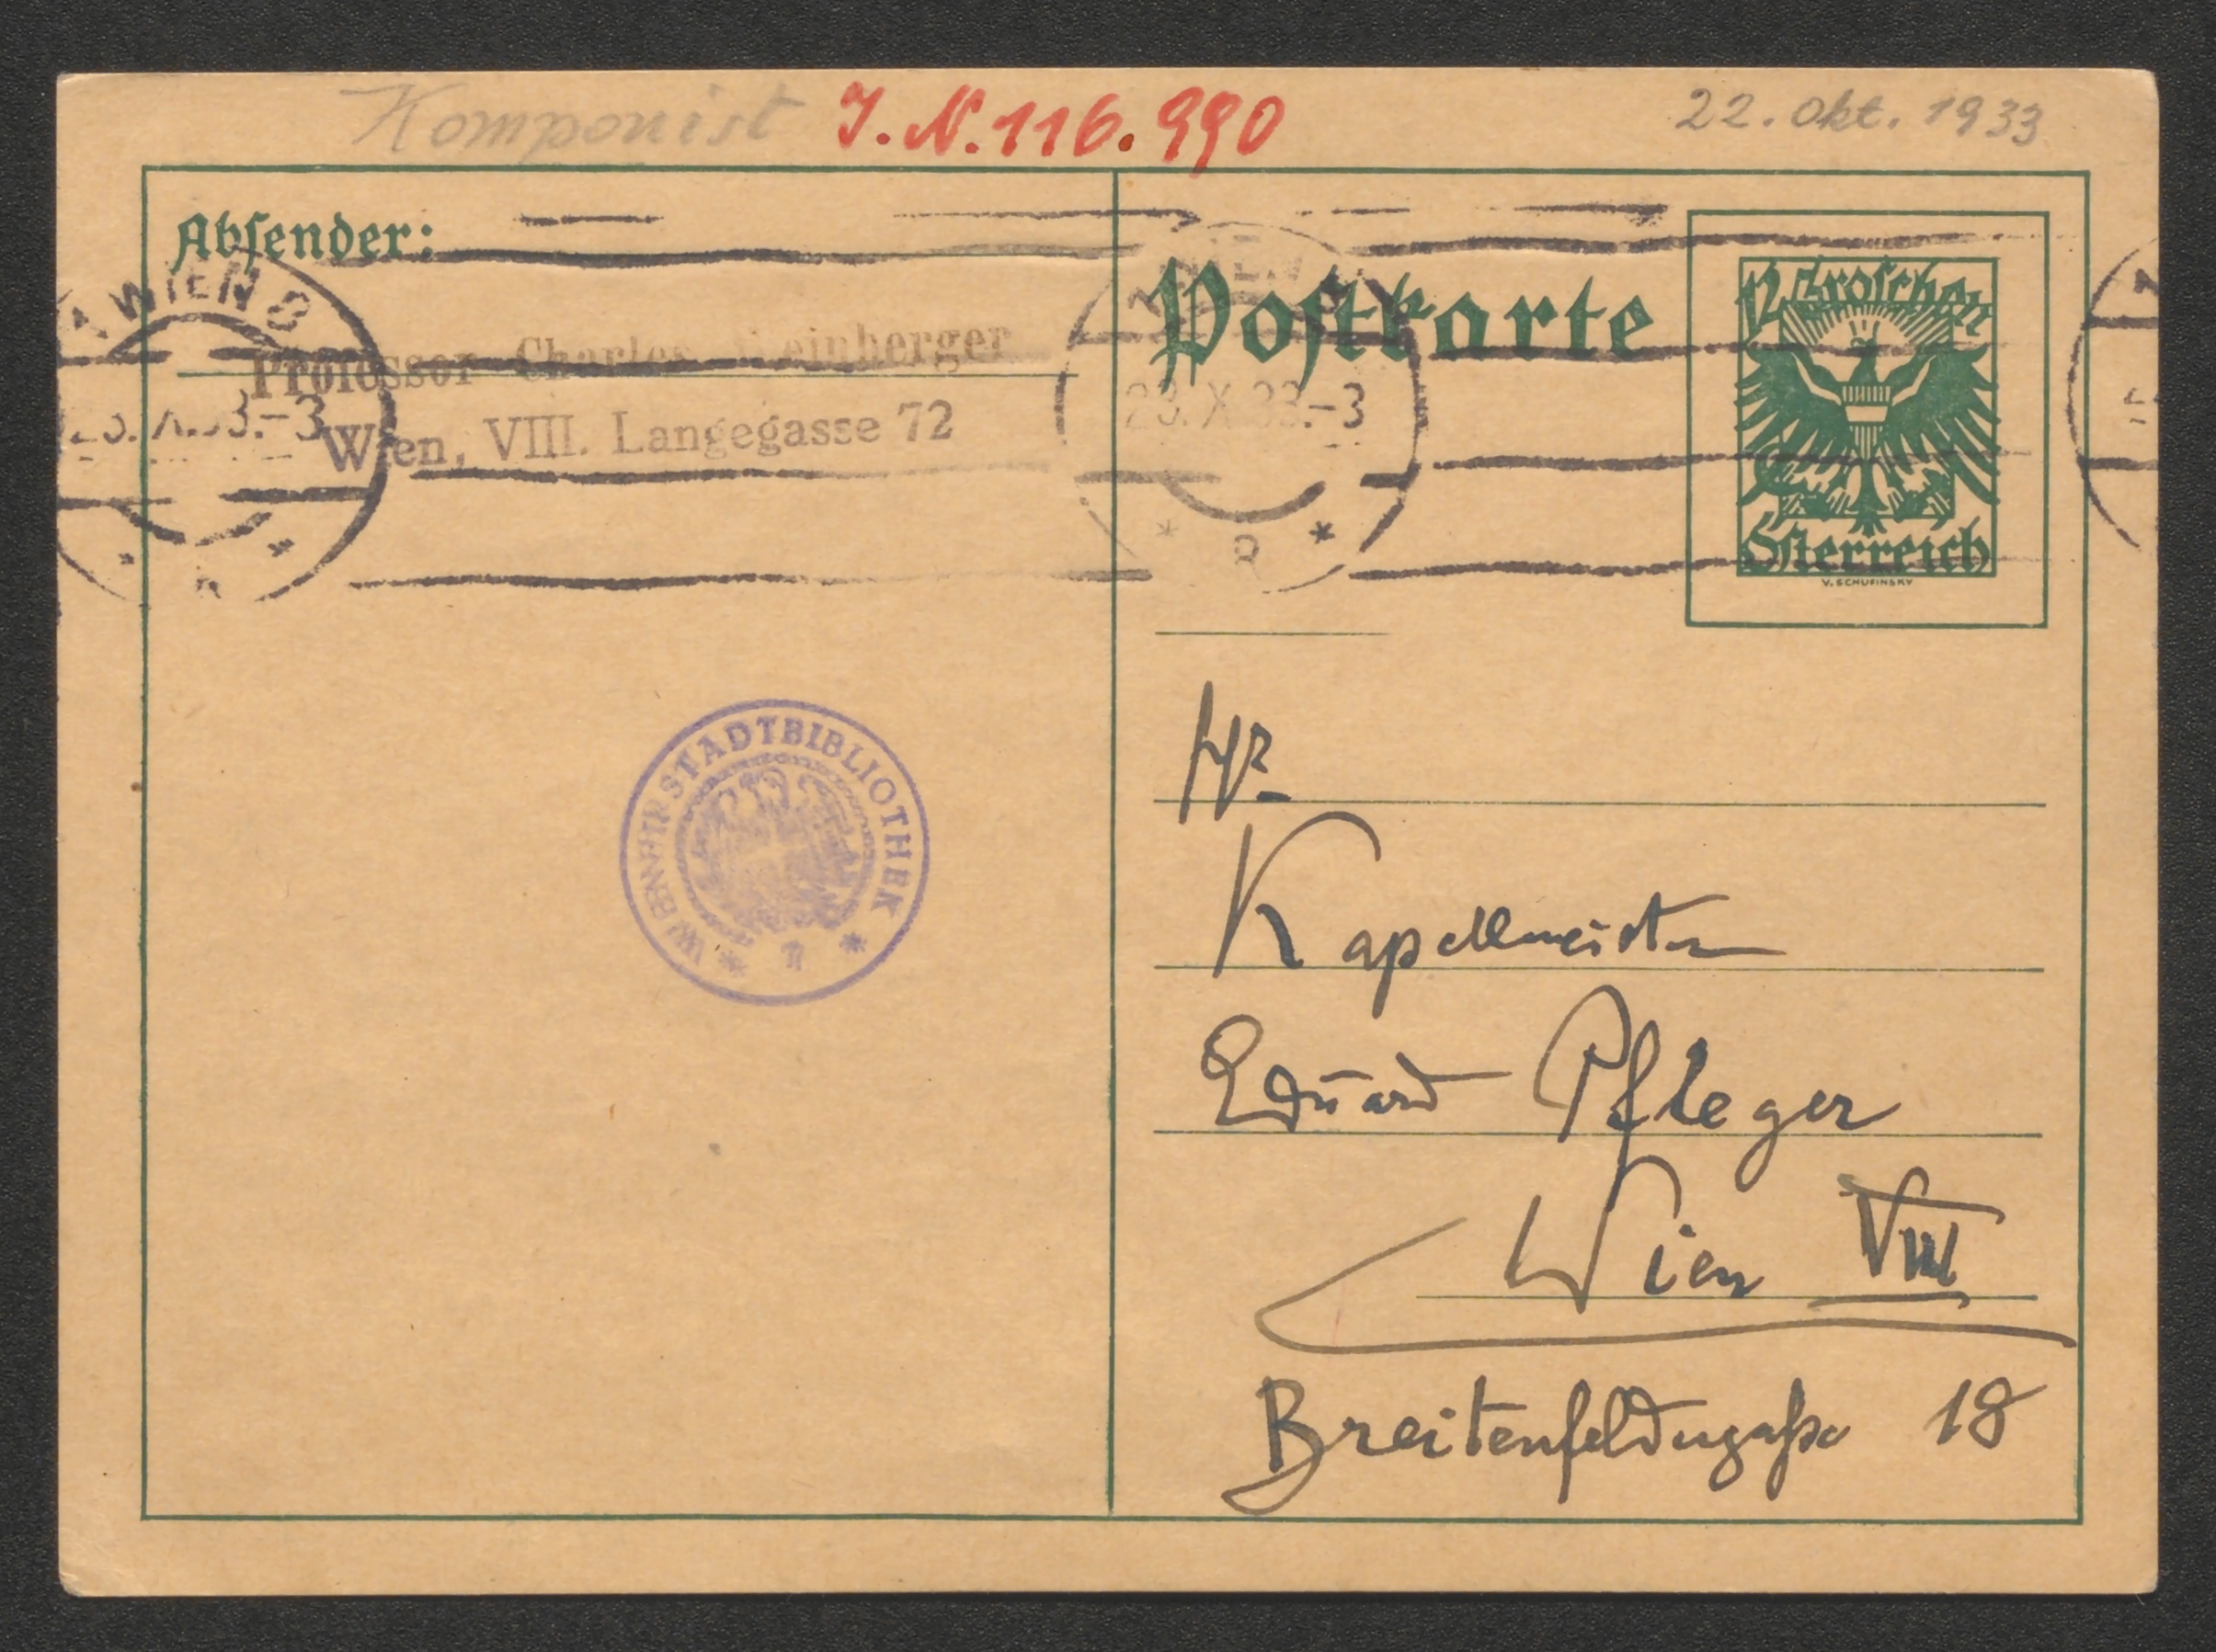 Komponist J.N.116.990
22. Okt. 1933
Absender:
Professor Charles Weinberger
Wien, VIII. Langegasse 72
WIEN 8
Postkarte
23.X.33.-3
8
12 Groschen
Österreich
V. SCHUFINSKY
WIENER STADTBIBLIOTHEK
Hr
Kapellmeister
Eduard Pfleger
Wien VIII
Breitenfeldergaße 18